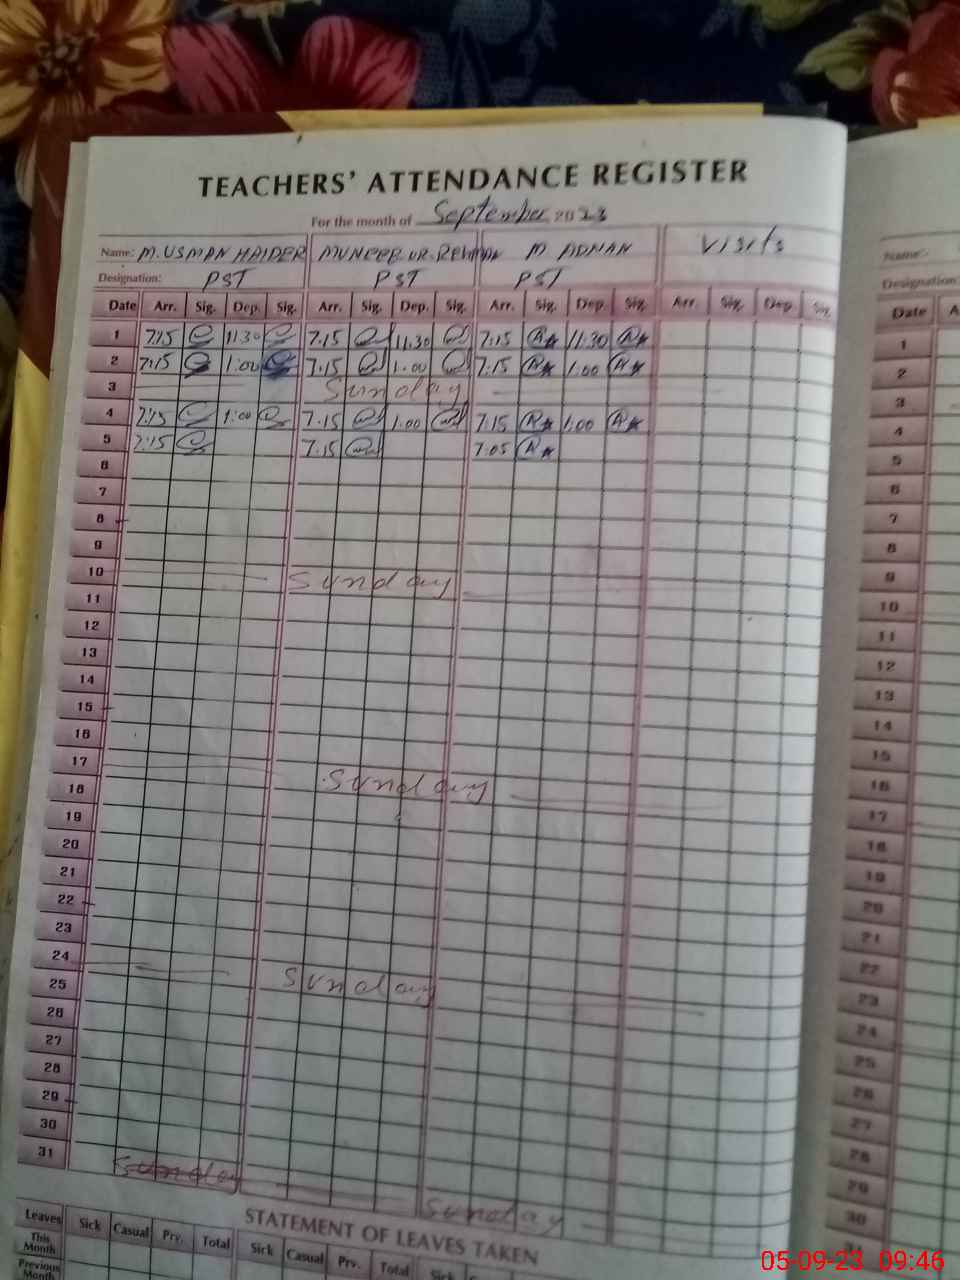 TEACHERS' ATTENDANCE REGISTER
For the month of September 2023
Name: M. USMAN HAIDER MUNEEB UR. REHMAN M ADNAN Visits
Designation: PST PST PST
Date Arr. Sig. Dep. Sig. Arr. Sig. Dep. Sig. Arr. Sig. Dep. Sig. Arr. Sig. Dep. Sig.
1 7:15 11:30 7:15 11.30 7:15 11:30
2 7:15 1:00 7.15 1.00 7:15 1.00
3 Sunday
4 7:15 1:00 7.15 1.00 7.15 1:00
5 7:15 7.15 7:05
6
7
8
9
10 Sunday
11
12
13
14
15
16
17
18 Sunday
19
20
21
22
23
24
25 Sunday
26
27
28
29
30
31 Sunday
Sunday
STATEMENT OF LEAVES TAKEN
Leaves Sick Casual Prv. Total Sick Casual Prv. Total Sick
This Month
Previous Month
Name:
Designation:
Date A
1
2
3
4
5
6
7
8
9
10
11
12
13
14
15
16
17
18
19
20
21
22
23
24
25
26
27
28
29
30
31
05-09-23 09:46